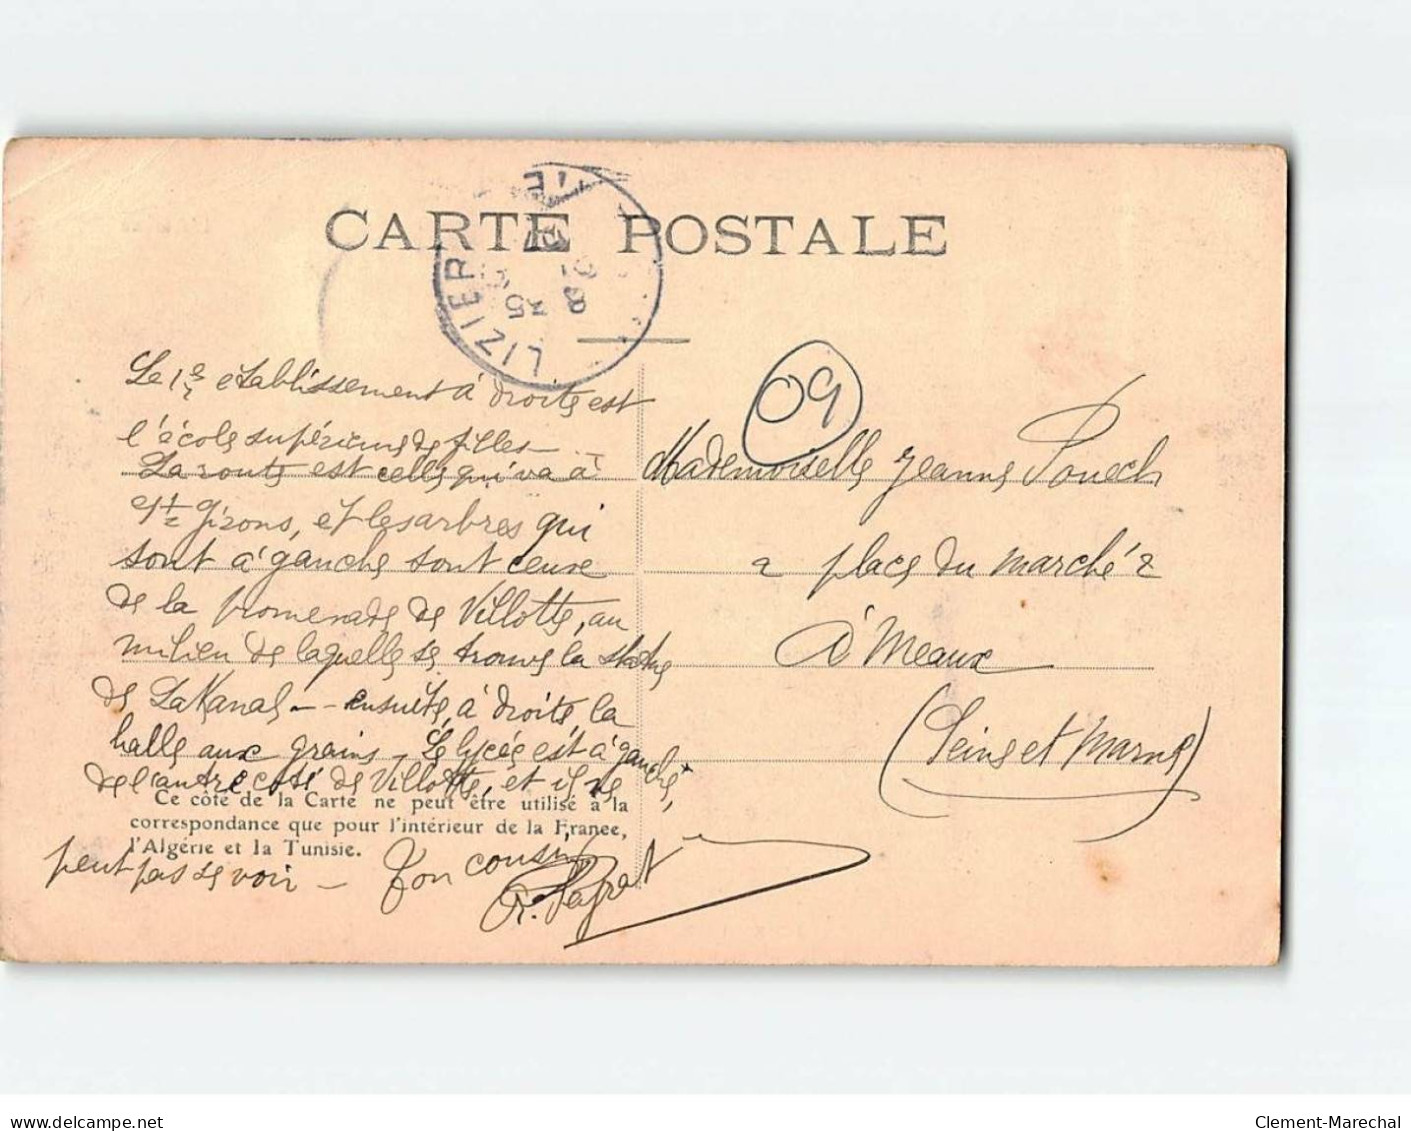 CARTE POSTALE
LIZIER
8 35
Le 1er établissement à droite est
l'école supérieure de filles –
La route est celle qui va à
St Girons, et les arbres qui
sont à gauche sont ceux
de la promenade de Villotte, au
milieu de laquelle se trouve la statue
de Lakanal – ensuite, à droite, la
halle aux grains – Le lycée est à gauche,
de l'autre coté de Villotte, et il ne
Ce côté de la Carte ne peut être utilisé à la
correspondance que pour l'intérieur de la France,
l'Algérie et la Tunisie.
peut pas se voir – Ton cousin
09
Mademoiselle Jeanne Pouech
2 place du marché 2
à Meaux
(Seine et Marne)
delcampe.net
Clement-Marechal